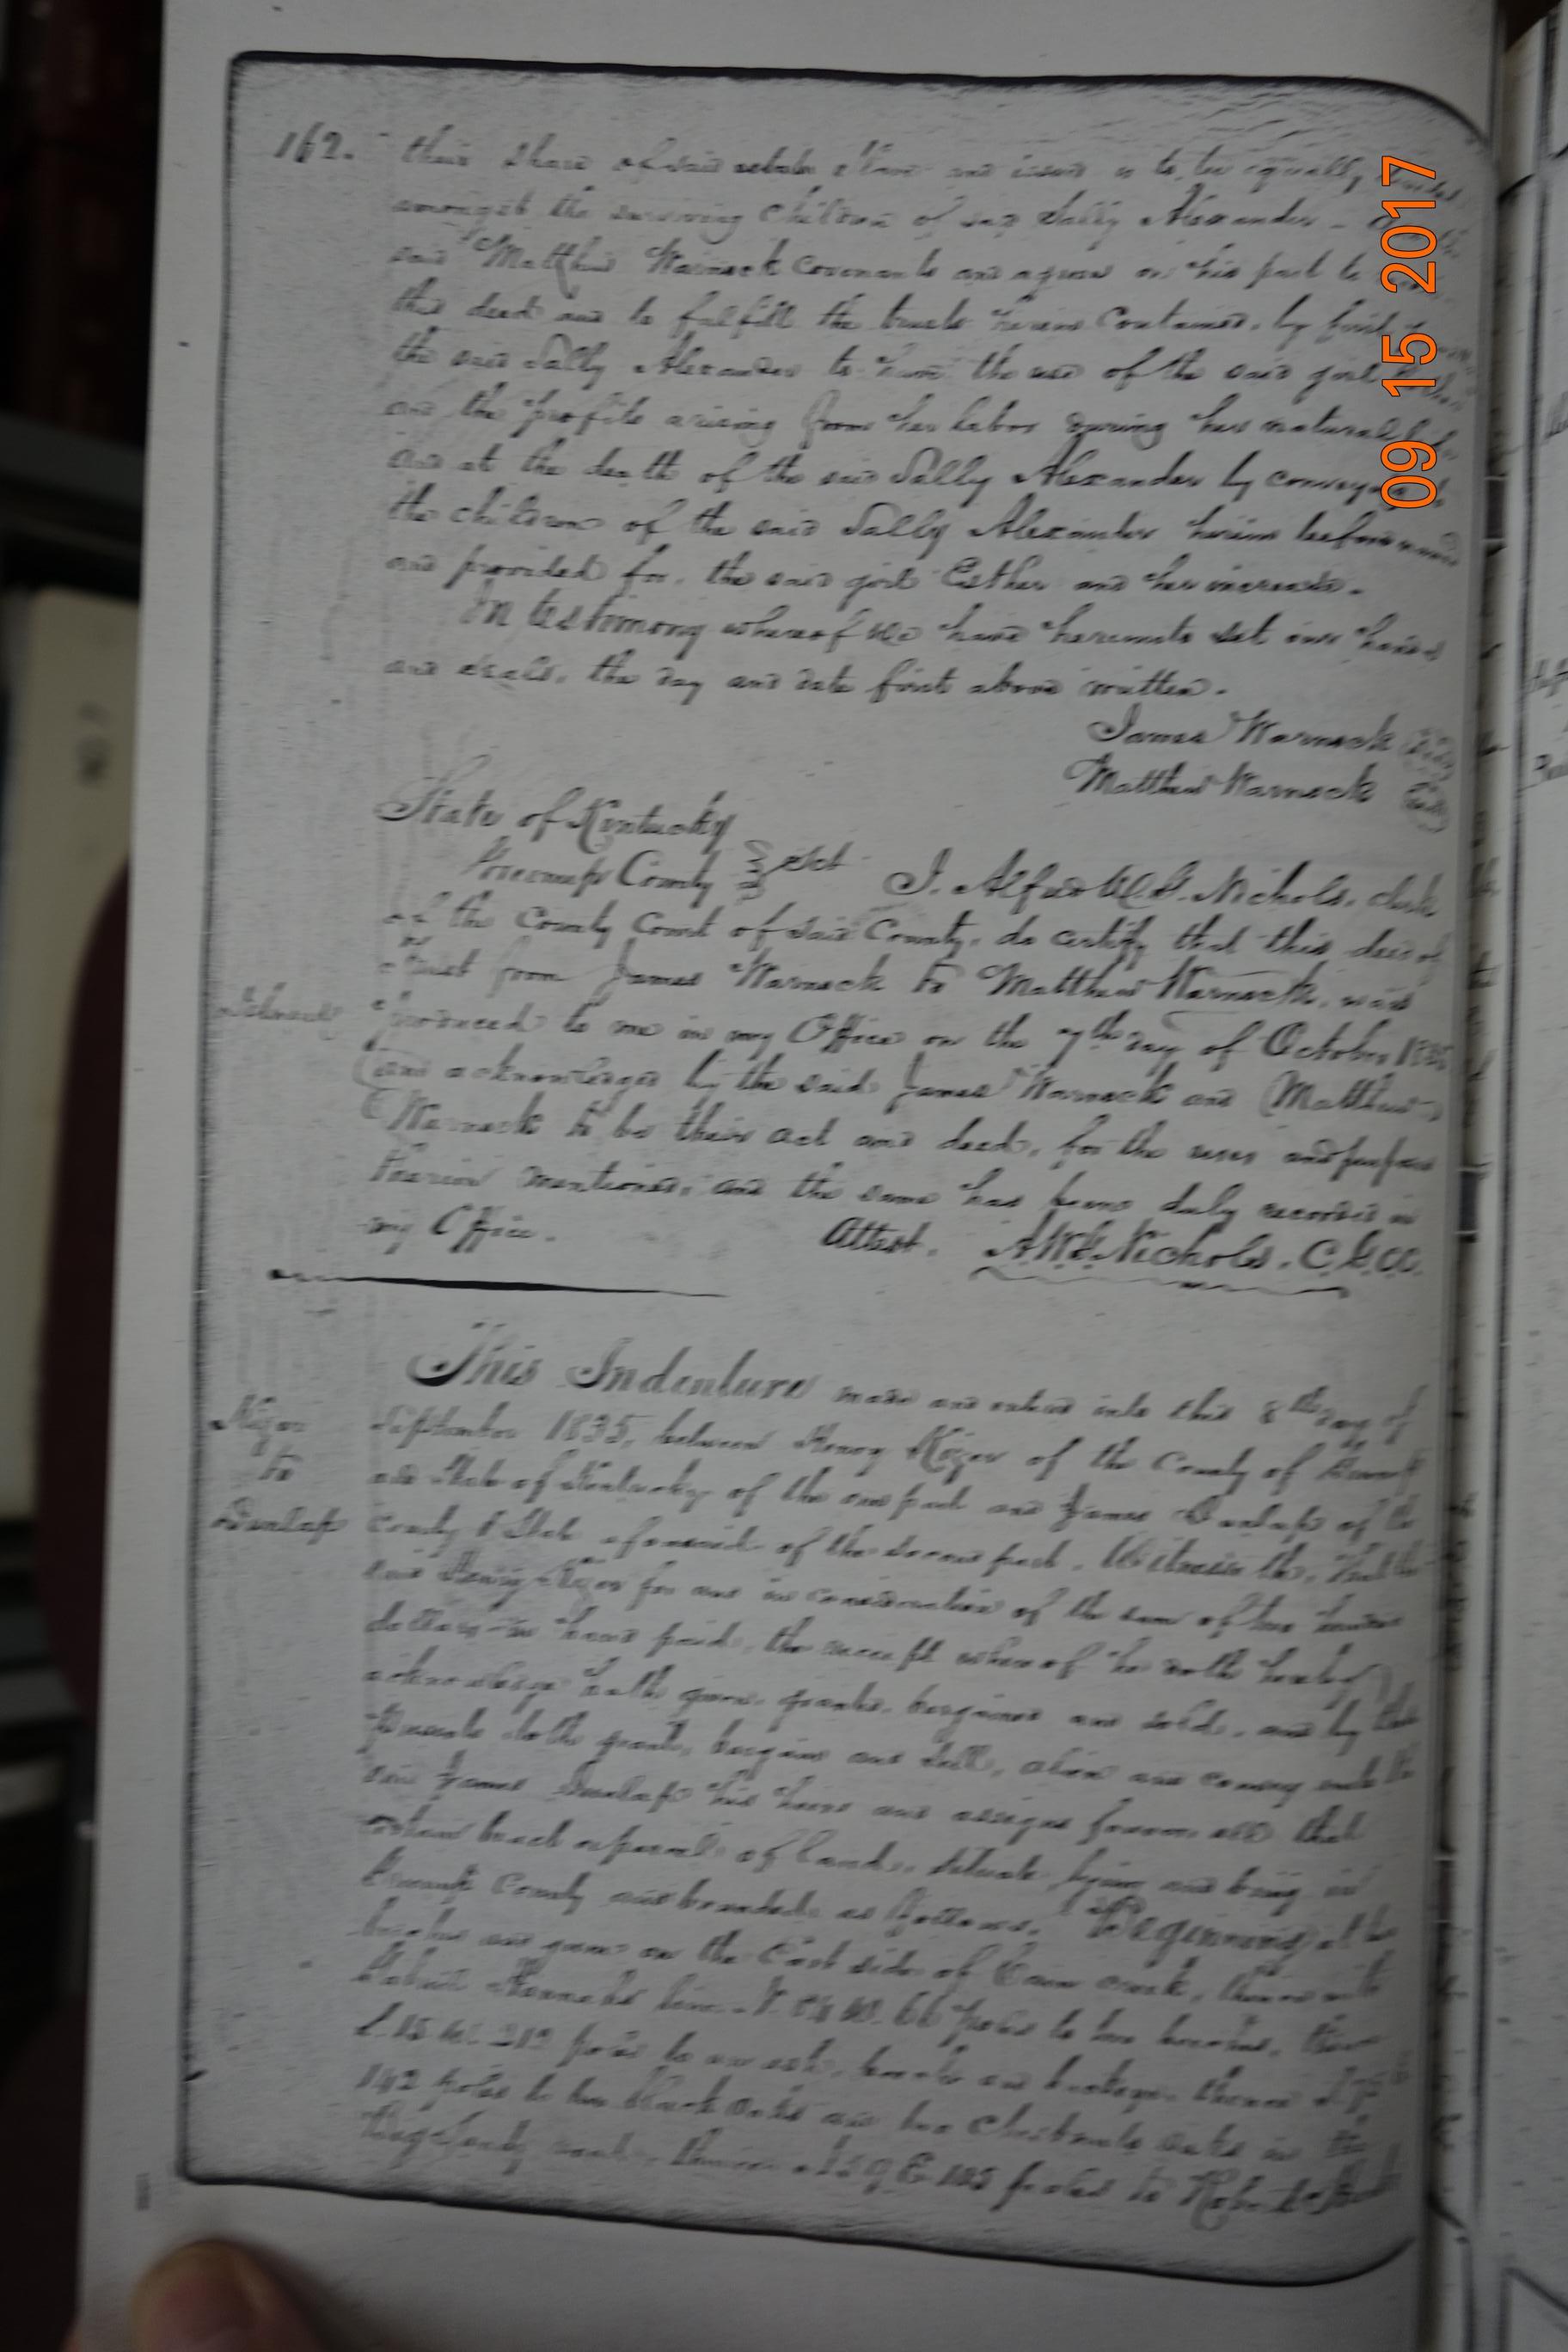 162. their share of said estate and issue is to be equally
amongst the surviving children of said Sally Alexander -
said Matthew Warnock covenants and agrees on his part to
this deed and to fulfill the trusts herein contained, by
the said Sally Alexander to have the use of the said girl
and the profits arising from her labor during her natural
and at the death of the said Sally Alexander by
the children of the said Sally Alexander herein before
and provided for, the said girl Esther and her increase.
In testimony whereof we have hereunto set our hands
and seals, the day and date first above written.
James Warnock
Matthew Warnock
State of Kentucky
Greenup County Sct I, Alfred W. G. Nichols, clerk
of the County Court of said County, do certify that this deed of
trust from James Warnock to Matthew Warnock, was
produced to me in my Office on the 7th day of October 1835
and acknowledged by the said James Warnock and Matthew
Warnock to be their act and deed, for the uses and purposes
therein mentioned, and the same has been duly recorded in
my Office. Attest. A.W.G. Nichols. C.G.C.C.
This Indenture made and entered into this 8th day of
September 1835, between Henry Kizer of the County of Greenup
and State of Kentucky of the one part and James Dunlap of the
to
Dunlap
County & State aforesaid of the second part. Witnesseth, that the
said Henry for and in consideration of the sum of two hundred
dollars in hand paid, the receipt whereof he doth hereby
acknowledge hath given, granted, bargained and sold, and by these
presents doth grant, bargain and sell, alien and convey unto the
said James Dunlap his heirs and assigns forever, all that
certain tract or parcel of land, situate lying and being in
Greenup County and bounded as follows, Beginning at
beeches and gum on the East side of Cane creek, thence with
line N. W. 66 poles to two beeches, thence
S. 15 W. 212 poles to an ash, and buckeye, thence
142 poles to two black oaks and two chestnut oaks in the
road, thence 59 E. 105 poles to Robert
09 15 2017